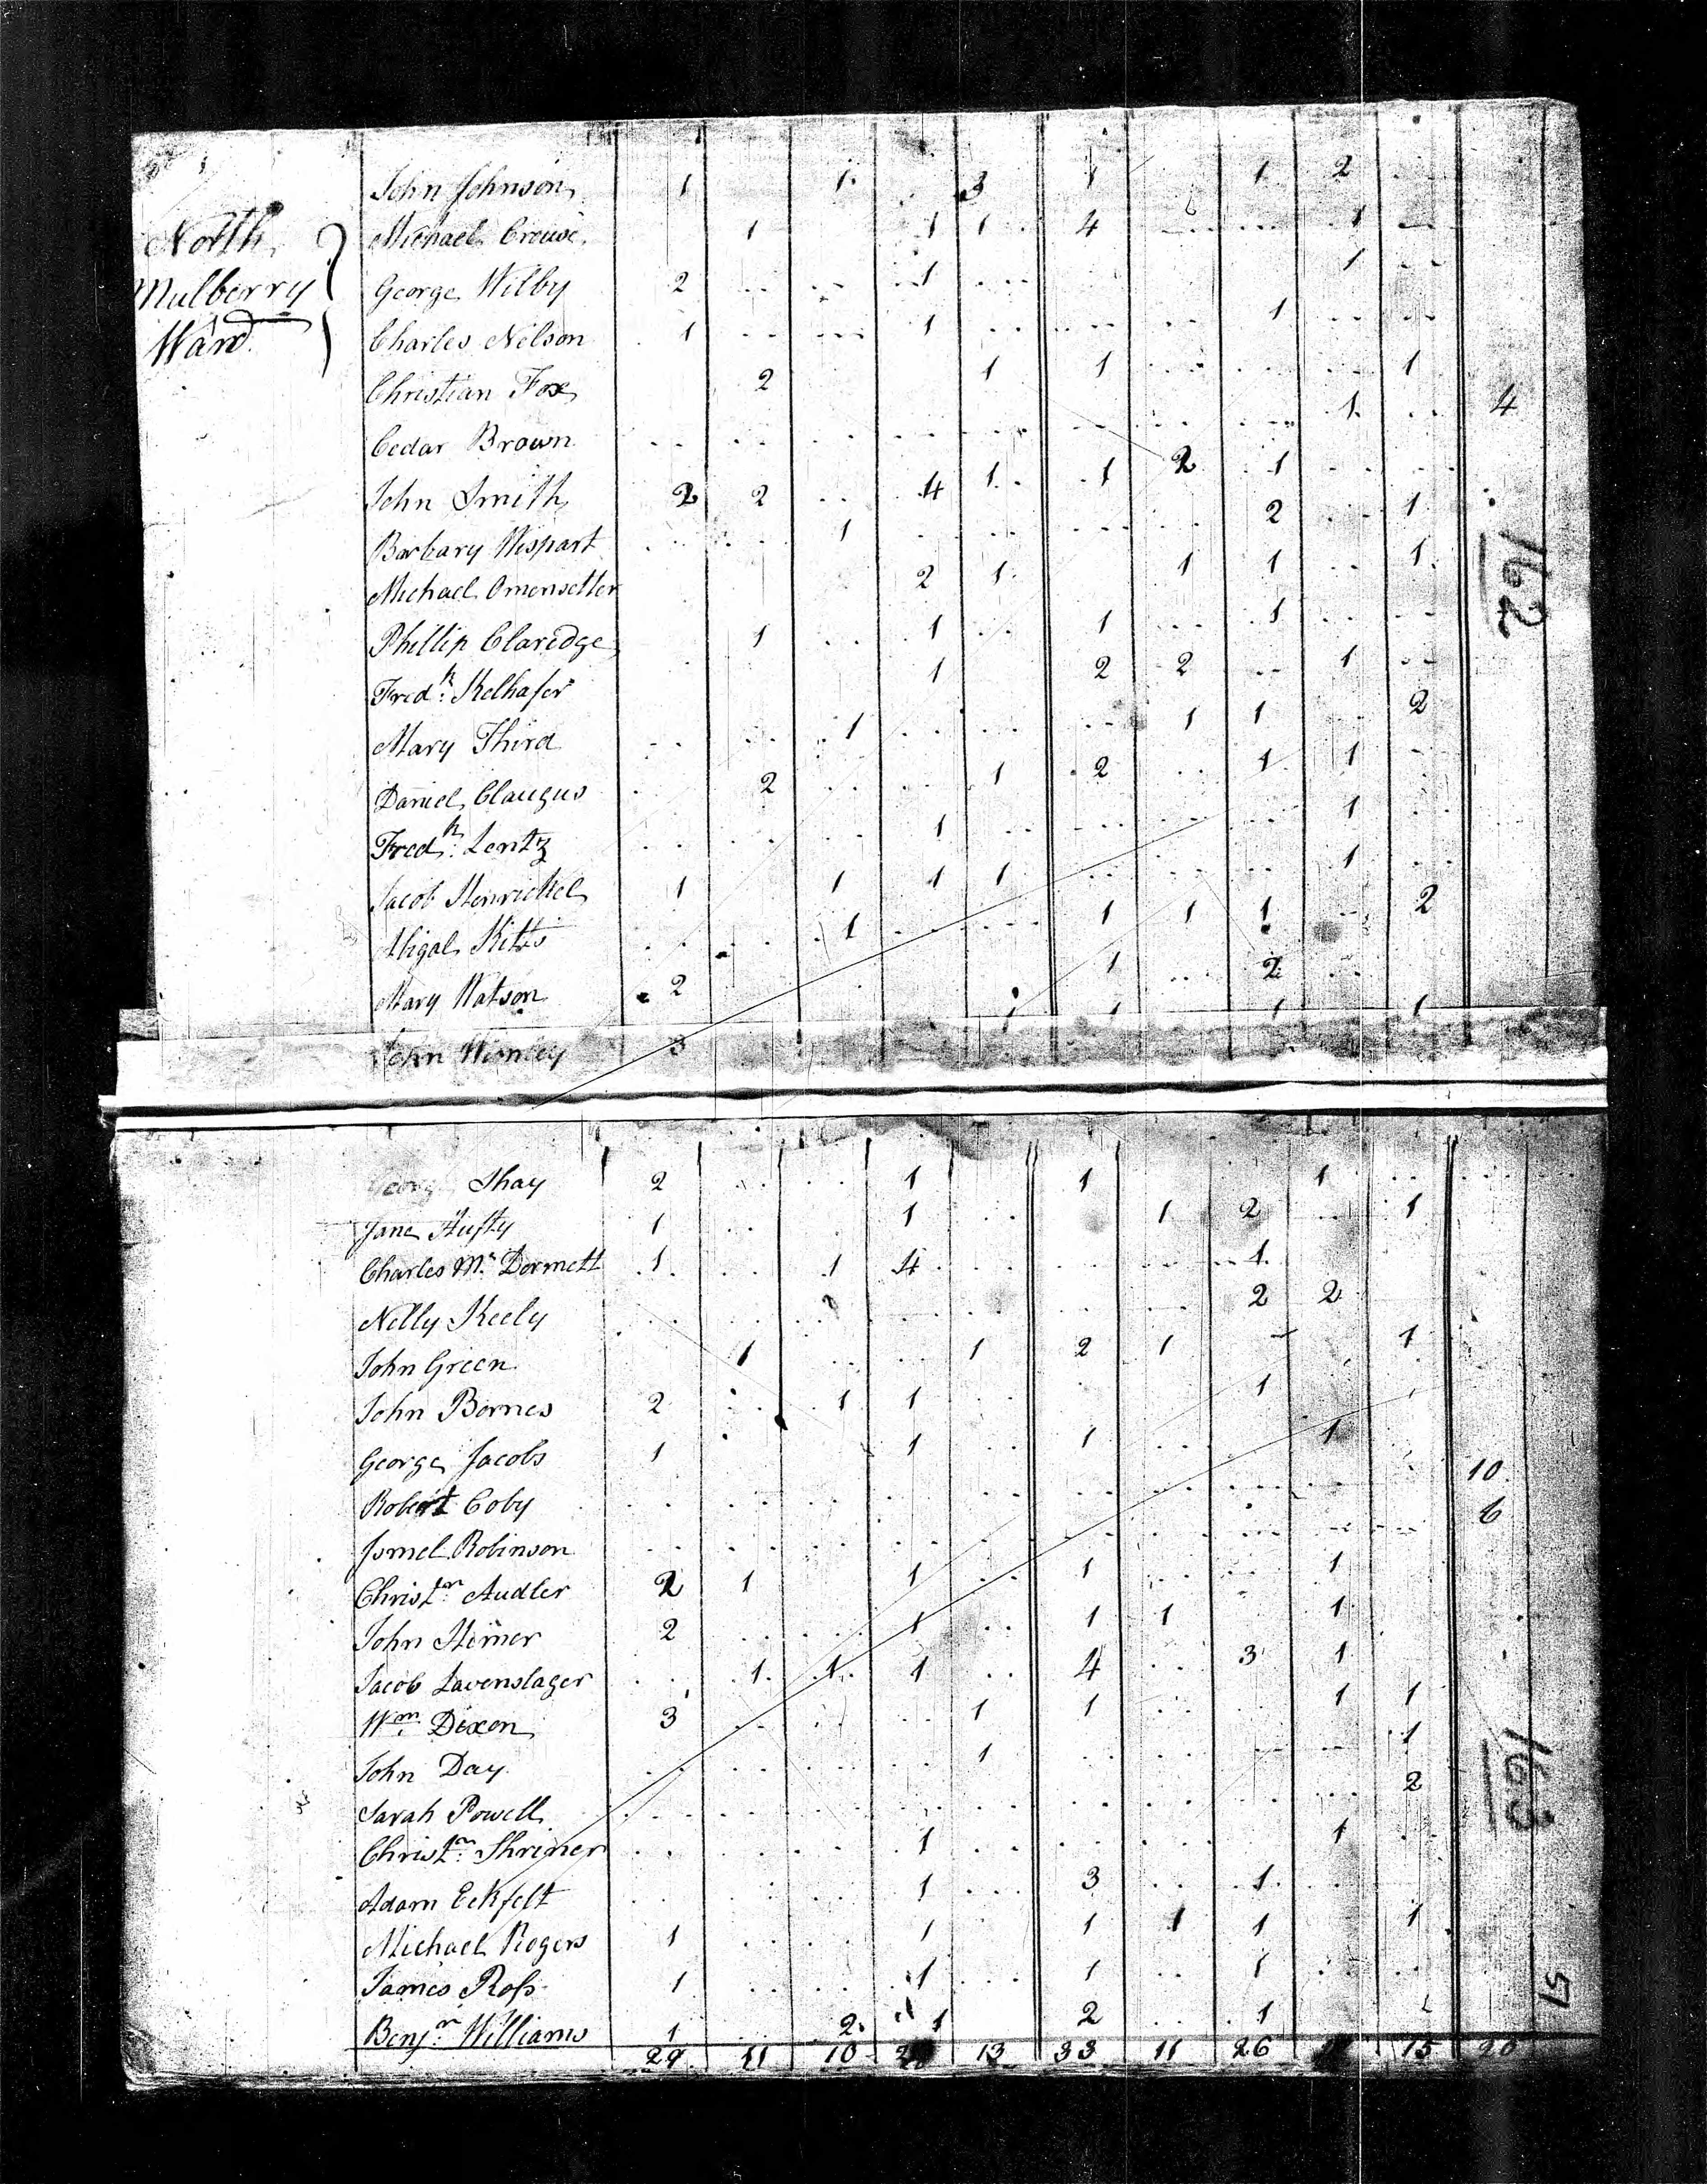 North
Mulberry
Ward
John Johnson 1 1 3 1 1 2
Michael Crouse 1 1 1 4 1
George Wilby 2 1 1
Charles Nelson 1 1 1
Christian Fox 2 1 1 1
Cedar Brown 1 4
John Smith 2 2 4 1 1 2 1
Barbary Wispart 1 2 1
Michael Omensetter 2 1 1 1 1
Phillip Claridge 1 1 1 1
Fredk. Kelhafer 1 2 2 1
Mary Third 1 1 1 2
Daniel Claugus 2 1 2 1 1
Fredk. Lentz 1 1
Jacob Henrickel 1 1 1 1 1
Abigal Kitts 1 1 1 1 2
Mary Watson 2 1 2
John 3 1 1 1 1
162
Shay 2 1 1 1
Jane Hufty 1 1 1 2 1
Charles Mc. Dormett 1 1 4 1
Nelly Keely 2 2
John Green 1 1 2 1 1
John Bornes 2 1 1 1
George Jacobs 1 1 1 1
Robert Coby 10
Ismel Robinson 6
Christn. Audler 2 1 1 1 1
John Himer 2 1 1 1 1
Jacob Lavenslager 1 1 1 4 3 1
Wm. Dixon 3 1 1 1 1
John Day 1 1
Sarah Powell 2
Christn. Shriner 1 1
Adam Eckfelt 1 3 1
Michael Rogers 1 1 1 1 1 1
James Ross 1 1 1 1
Benjn. Williams 1 2 1 2 1
29 11 10 13 33 11 26 15 20
163
51